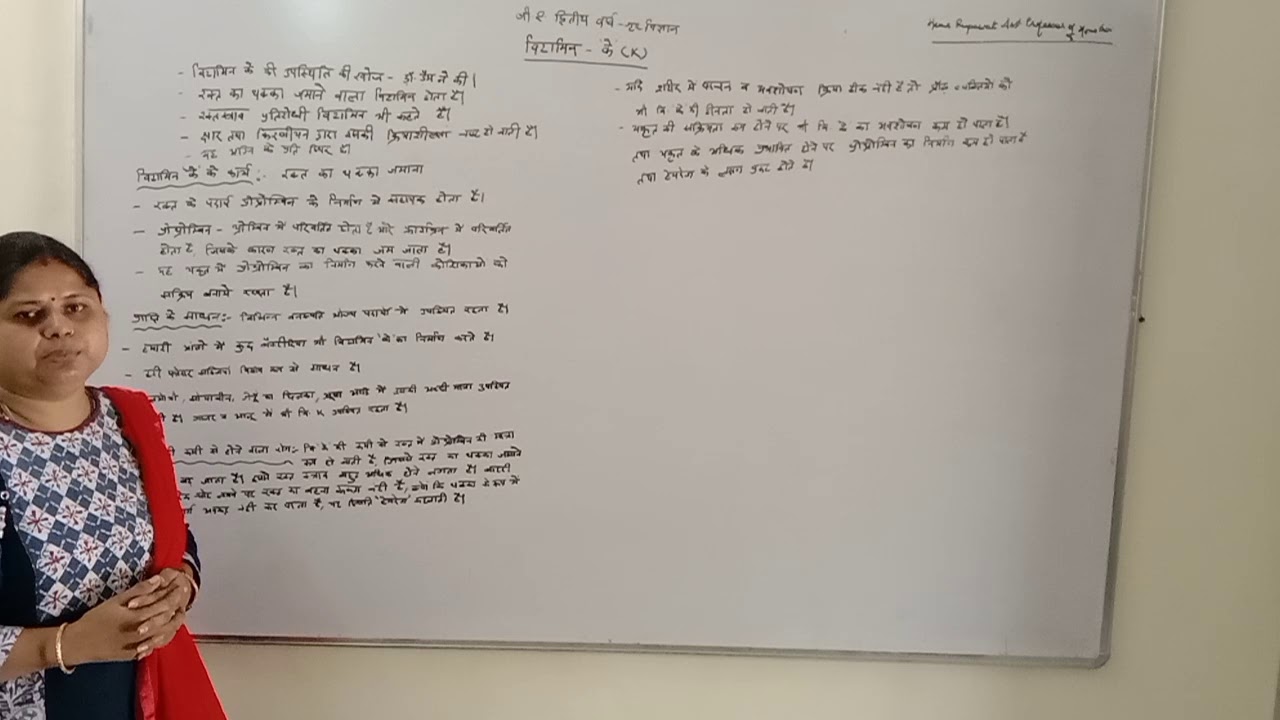 बी ए द्वितीय वर्ष - गृह विज्ञान
विटामिन - के (K)
- विटामिन के की उपस्थिति की खोज - डॉ. डैम ने की।
- रक्त का थक्का जमाने वाला विटामिन होता है।
- रक्तस्त्राव प्रतिरोधी विटामिन भी कहते है।
- क्षार तथा किरणीयन द्वारा इसकी क्रियाशीलता नष्ट हो जाती है।
- यह अग्नि के प्रति स्थिर है।
विटामिन 'के' के कार्य :- रक्त का थक्का जमाना
- रक्त के पदार्थ प्रोथ्रोम्बिन के निर्माण में सहायक होता है।
- प्रोथ्रोम्बिन - थ्रोम्बिन में परिवर्तित होता है और फाइब्रिन में परिवर्तित
होता है, जिसके कारण रक्त का थक्का जम जाता है।
- यह यकृत में प्रोथ्रोम्बिन का निर्माण करने वाली कोशिकाओ को
सक्रिय बनाये रखता है।
प्राप्ति के साधन:- विभिन्न वनस्पति भोज्य पदार्थो में उपस्थित रहता है।
- हमारी आंतो में कुछ बैक्टीरिया भी विटामिन 'के' का निर्माण करते है।
- हरी पत्तेदार सब्जियां विशेष रूप से साधन है।
सोयाबीन, गेहूँ का छिलका, में इसकी अच्छी मात्रा उपस्थित
है। गाजर व आलू में भी वि. K उपस्थित रहता है।
कमी से होने वाला रोग:- वि. के की कमी से रक्त में प्रोथ्रोम्बिन की मात्रा
कम हो जाती है, जिससे रक्त का थक्का जमाने
जाता है। इससे रक्त स्त्राव बहुत अधिक होने लगता है।
चोट लगने पर रक्त का बहना रूकता नहीं है, क्यो कि थक्का के रूप में
नही कर पाता है, यह स्थिति "हेमरेज" कहलाती है।
- यदि शरीर में पाचन व अवशोषण क्रिया ठीक नही है तो प्रौढ़ व्यक्तियों को
भी वि. के की हीनता हो जाती है।
- यकृत की सक्रियता कम होने पर भी वि. के का अवशोषण कम हो पाता है।
तथा यकृत के अधिक प्रभावित होने पर प्रोथ्रोम्बिन का निर्माण कम हो पाता है
तथा हेमरेज के लक्षण प्रकट होते है।